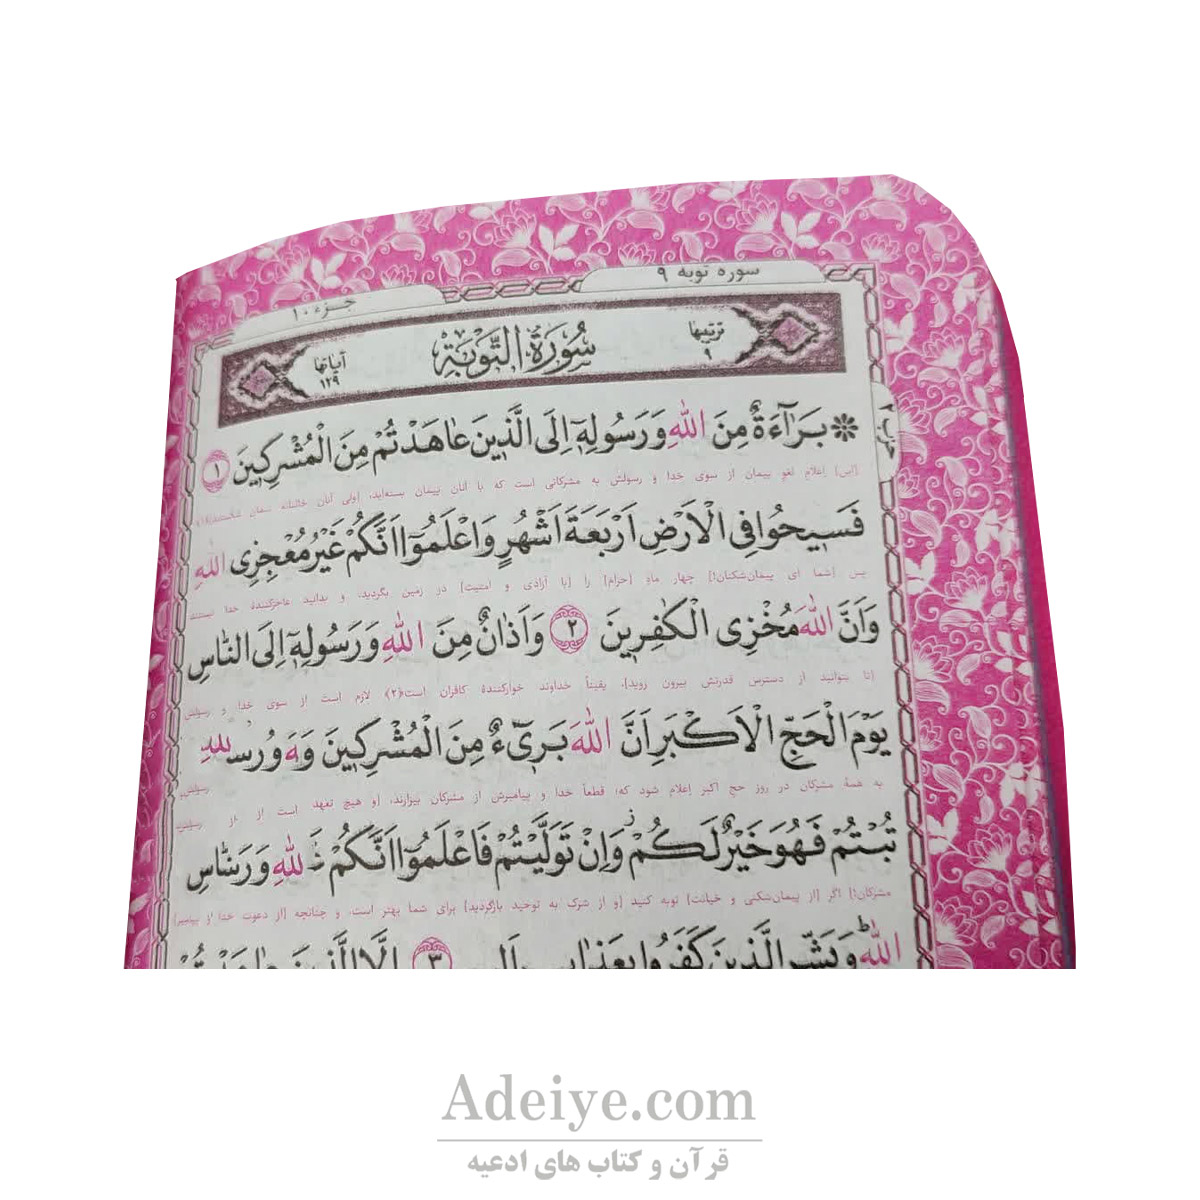 سوره توبه ۹
جزء ۱۰
ترتیبها ۹
سُورَةُ التَّوْبَةِ
آیاتها ۱۲۹
❊ بَرَآءَةٌ مِنَ اللهِ وَ رَسُولِهٖٓ اِلَى الَّذٖينَ عَاهَدْتُمْ مِنَ الْمُشْرِكٖينَ ۱
[این] اِعلامِ لغوِ پیمان از سوی خدا و رسولش به مشرکانی است که با آنان پیمان بسته‌اید،
فَسٖيحُوا فِى الْاَرْضِ اَرْبَعَةَ اَشْهُرٍ وَ اعْلَمُٓوا اَنَّكُمْ غَيْرُ مُعْجِزِى اللهِ
پس [شما ای پیمان‌شکنان!] چهار ماهِ [حرام] را [با آزادی و امنیت] در زمین بگردید، و بدانید عاجزکنندهٔ خدا نیستید
وَ اَنَّ اللهَ مُخْزِى الْكٰفِرٖينَ ۲ وَ اَذَانٌ مِنَ اللهِ وَ رَسُولِهٖٓ اِلَى النَّاسِ
[تا بتوانید از دسترس قدرتش بیرون روید]، یقیناً خداوند خوارکنندهٔ کافران است﴿۲﴾ لازم است از سوی خدا و رسولش
يَوْمَ الْحَجِّ الْاَكْبَرِ اَنَّ اللهَ بَرٖٓىءٌ مِنَ الْمُشْرِكٖينَ
به همهٔ مشرکان در روز حج اکبر اِعلام شود که: قطعاً خدا و پیامبرش از مشرکان بیزارند،
تُبْتُمْ فَهُوَ خَيْرٌ لَكُمْ وَ اِنْ تَوَلَّيْتُمْ فَاعْلَمُٓوا اَنَّكُمْ
مشرکان!] اگر [از پیمان‌شکنی و خیانت] توبه کنید [و از شرک به توحید بازگردید] برای شما بهتر است، و چنانچه [از دعوت خدا و پیامبر]
اللهِ وَ بَشِّرِ الَّذٖينَ كَفَرُوا بِعَذَابٍ اَلٖيمٍ ۳ اِلَّا الَّذٖينَ عَاهَدْتُمْ
Adeiye.com
قرآن و کتاب های ادعیه